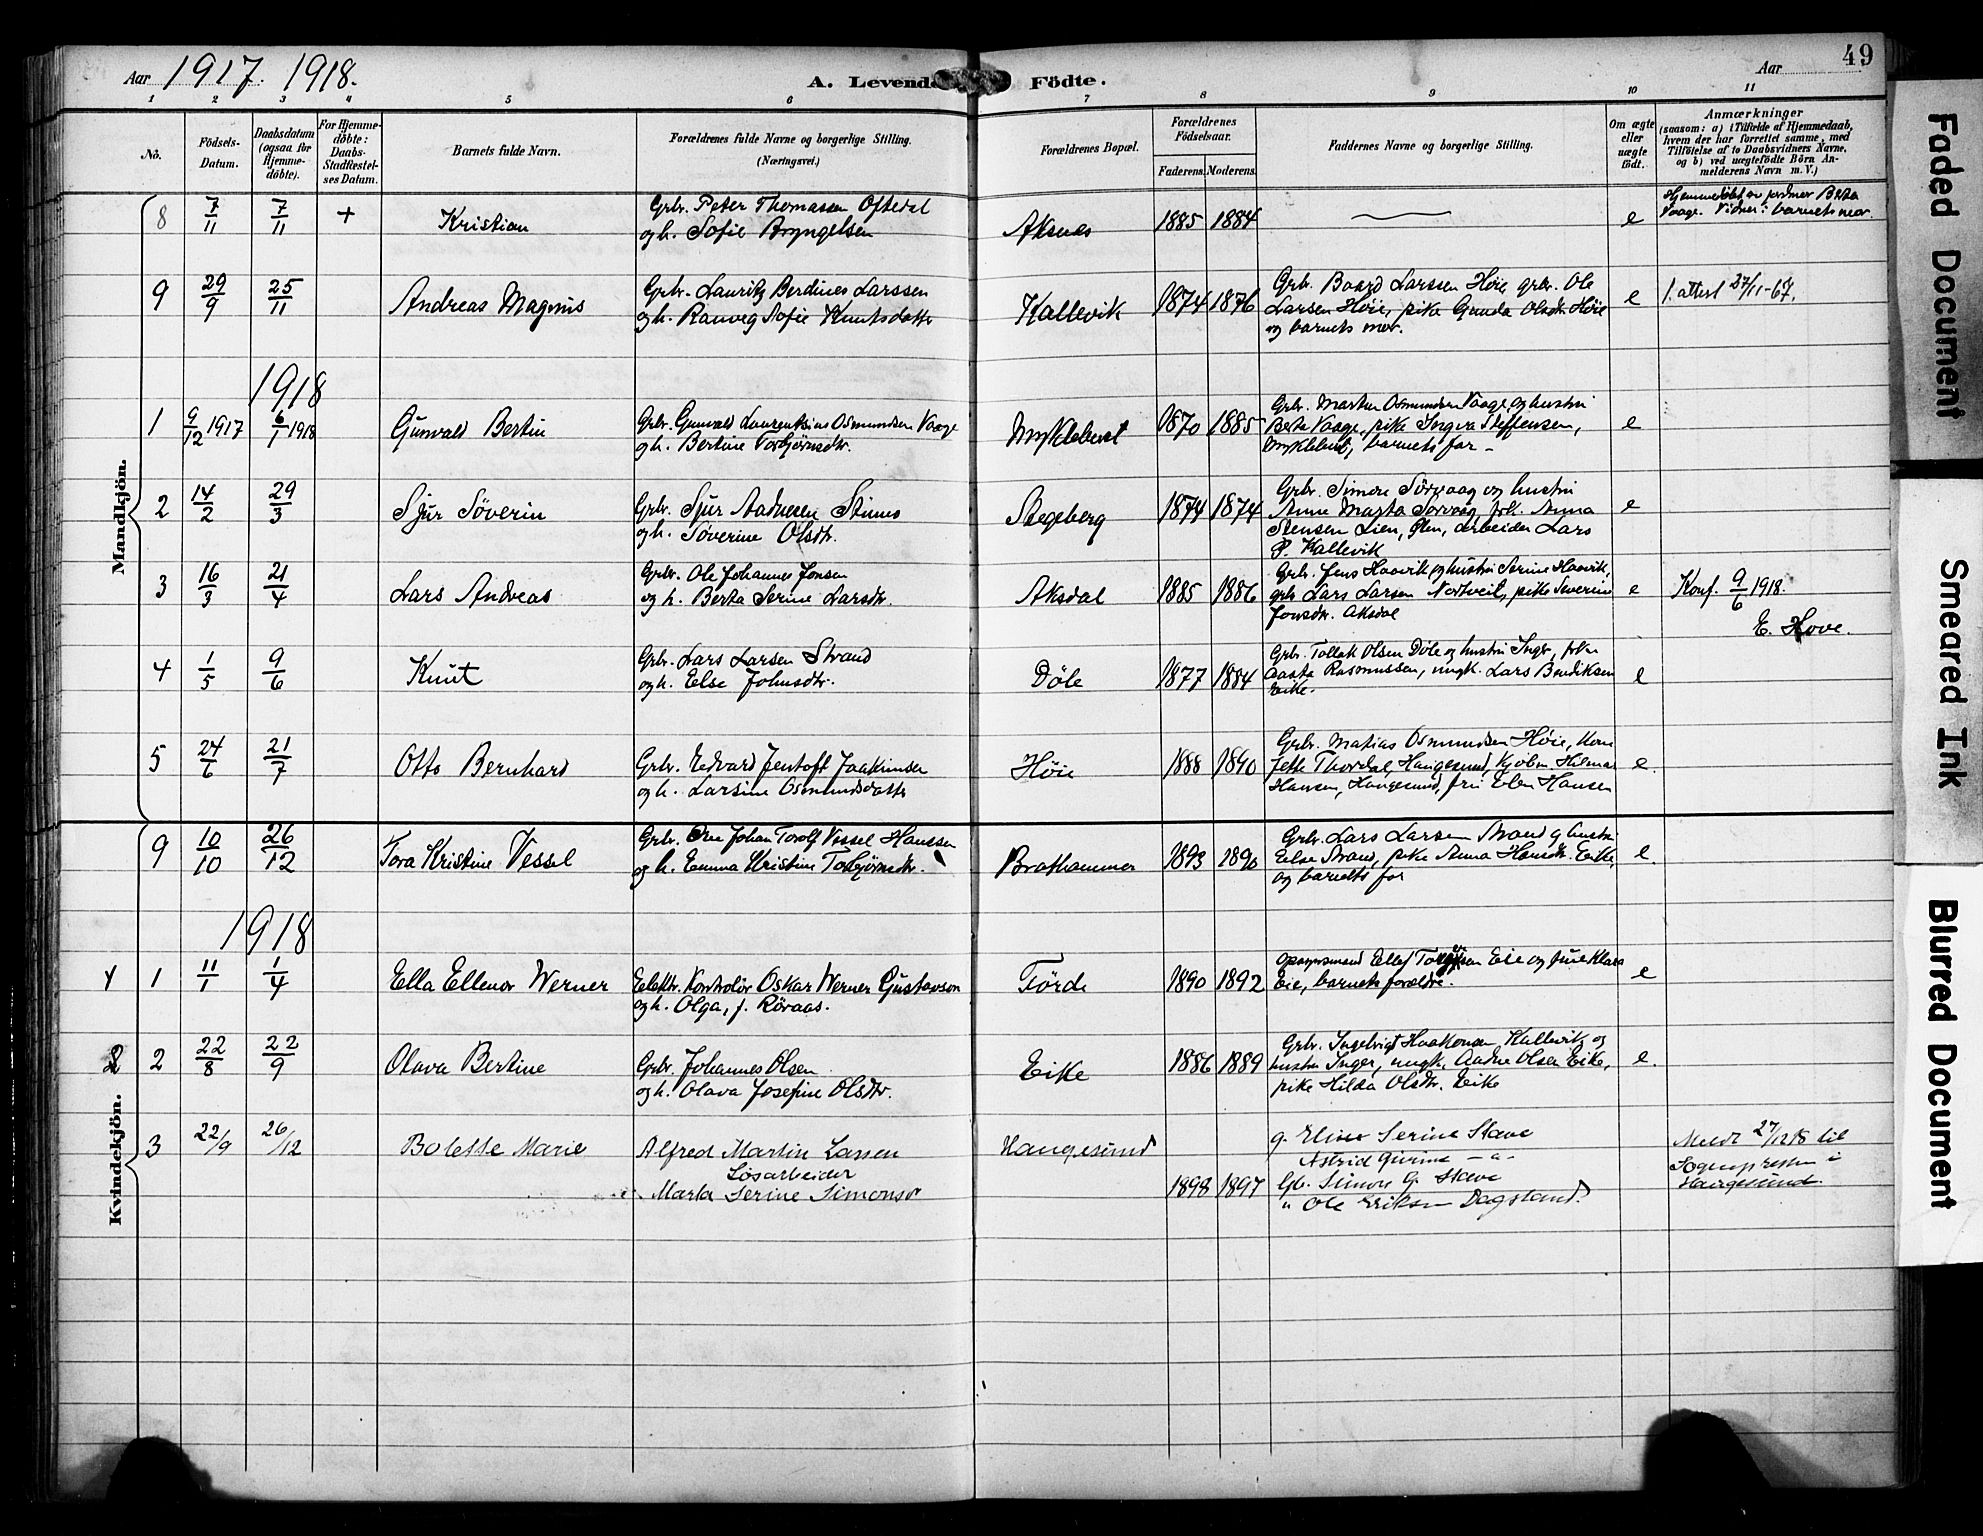 Aar 1917. 1918.
A. Levende Födte.
Aar
49
1 2 3 4 5 6 7 8 9 10 11
No.
Födsels-Datum.
Daabsdatum (ogsaa for Hjemme-döbte).
For Hjemme-döbte: Daabs-Stadfæstel-ses Datum.
Barnets fulde Navn.
Forældrenes fulde Navne og borgerlige Stilling.
(Næringsvei.)
Forældrenes Bopæl.
Forældrenes Födselsaar.
Faderens. Moderens.
Faddernes Navne og borgerlige Stilling.
Om ægte eller uægte födt.
Anmærkninger
(saasom: a) i Tilfælde af Hjemmedaab,
hvem der har forrettet samme, med
Tilföielse af to Daabsvidners Navne,
og b) ved uægtefödte Börn An-
melderens Navn m. V.)
Mandkjön.
8 7/11 7/11 + Kristian
Grbr. Peter Thomassen Oftedal
og h. Sofie Bryngelsen
Aksnes 1885 1884 e
Hjemmedøbt av jordmor Berta
Vaage. Vidner: barnets mor.
9 29/9 25/11 Andreas Magnus
Grbr. Lauritz Berdines Larssen
og h. Ranveg Sofie Knutsdatter
Kallevik 1874 1876
Grbr. Baard Larssen Høie, grbr. Ole
Larsen Høie, pike Gunda Olsdtr. Høie
og barnets mor.
e
1. attest 27/11-67.
1918
1 9/12 1917 6/1 1918 Gunvald Bertin
Grbr. Gunvald Laurentsius Osmundsen Vaage
og h. Bertine Torbjørnsdtr.
Myklebust 1870 1885
Grbr. Martin Osmundsen Vaage og hustru
Berta Vaage, pike Ingva Steffensen,
Myklebust, barnets far -
e
2 14/2 29/3 Sjur Söverin
Grbr. Sjur Aadnesen Stinus
og h. Söverine Olsdtr.
Stegeberg 1874 1874
Grbr. Simon Sørvaag og hustru
Anne Marta Sørvaag, frk. Anna
Stensen Lien, Ølen, arbeider Lars
P. Kallevik
e
3 16/3 21/4 Lars Andreas
Grbr. Ole Johannes Jonsen
og h. Berta Serine Larsdtr.
Aksdal 1885 1886
Grbr. Jens Haavik og hustru Serine Haavik,
grbr. Lars Larsen Nortveit, pike Severine
Jonsdtr. Aksdal
e
Konf. 9/6 1918.
E. Hove.
4 1/5 9/6 Knut
Grbr. Lars Larsen Strand
og h. Else Johnsdtr.
Döle 1877 1884
Grbr. Tollak Olsen Döle og hustru Inger, frk.
Aasta Rasmussen, ungk. Lars Bendiksen
Eike.
e
5 24/6 21/7 Otto Bernhard
Grbr. Edvard Jentoft Joakimsen
og h. Larsine Osmundsdatter
Höie 1888 1890
Grbr. Matias Osmundsen Höie, kone
Jette Thordal, Haugesund, kjøbm. Hilmar
Hansen, Haugesund, fru Elen Hansen
e.
Kvindekjön.
9 10/10 26/12 Tora Kristine Vessel
Grbr. Johan Torolf Vessel Hanssen
og h. Emma Kristine Torbjörnsdtr.
Brathammer 1893 1890
Grbr. Lars Larsen Strand og hustru
Else Strand, pike Anna Hansdtr. Eike,
og barnets far
e.
1918
1 11/1 1/4 Ella Ellenor Werner
Elektr. Kontrolör Oskar Werner Gustavson
og h. Olga, f. Röraas.
Förde 1890 1892
Opsynsmand Ellef Eie og frue Klara
Eie, barnets forældre.
e
2 2 22/8 22/9 Olava Bertine
Grbr. Johannes Olsen
og h. Olava Josefine Olsdtr.
Eike 1886 1889
Grbr. Ingebrigt Haakonsen Kallevik og
hustru Inger, ungk. Aadne Olsen Eike,
pike Hilda Olsdtr. Eike
e.
3 22/9 26/12 Bolette Marie
Alfred Martin Larsen
Lösarbeider
Marta Serine Simonsdr
Haugesund 1898 1897
g. Elise Serine Stave
Astrid Gurine -"-
Gbr. Simon G. Stave
" Ole Eriksen Dagsland.
Meldt 27/12 18 til
Sognepresten i
Haugesund.
Faded Document
Smeared Ink
Blurred Document